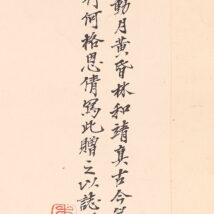 動月黃昏林和靖真古今
何格恩倩寫此贈之以誌